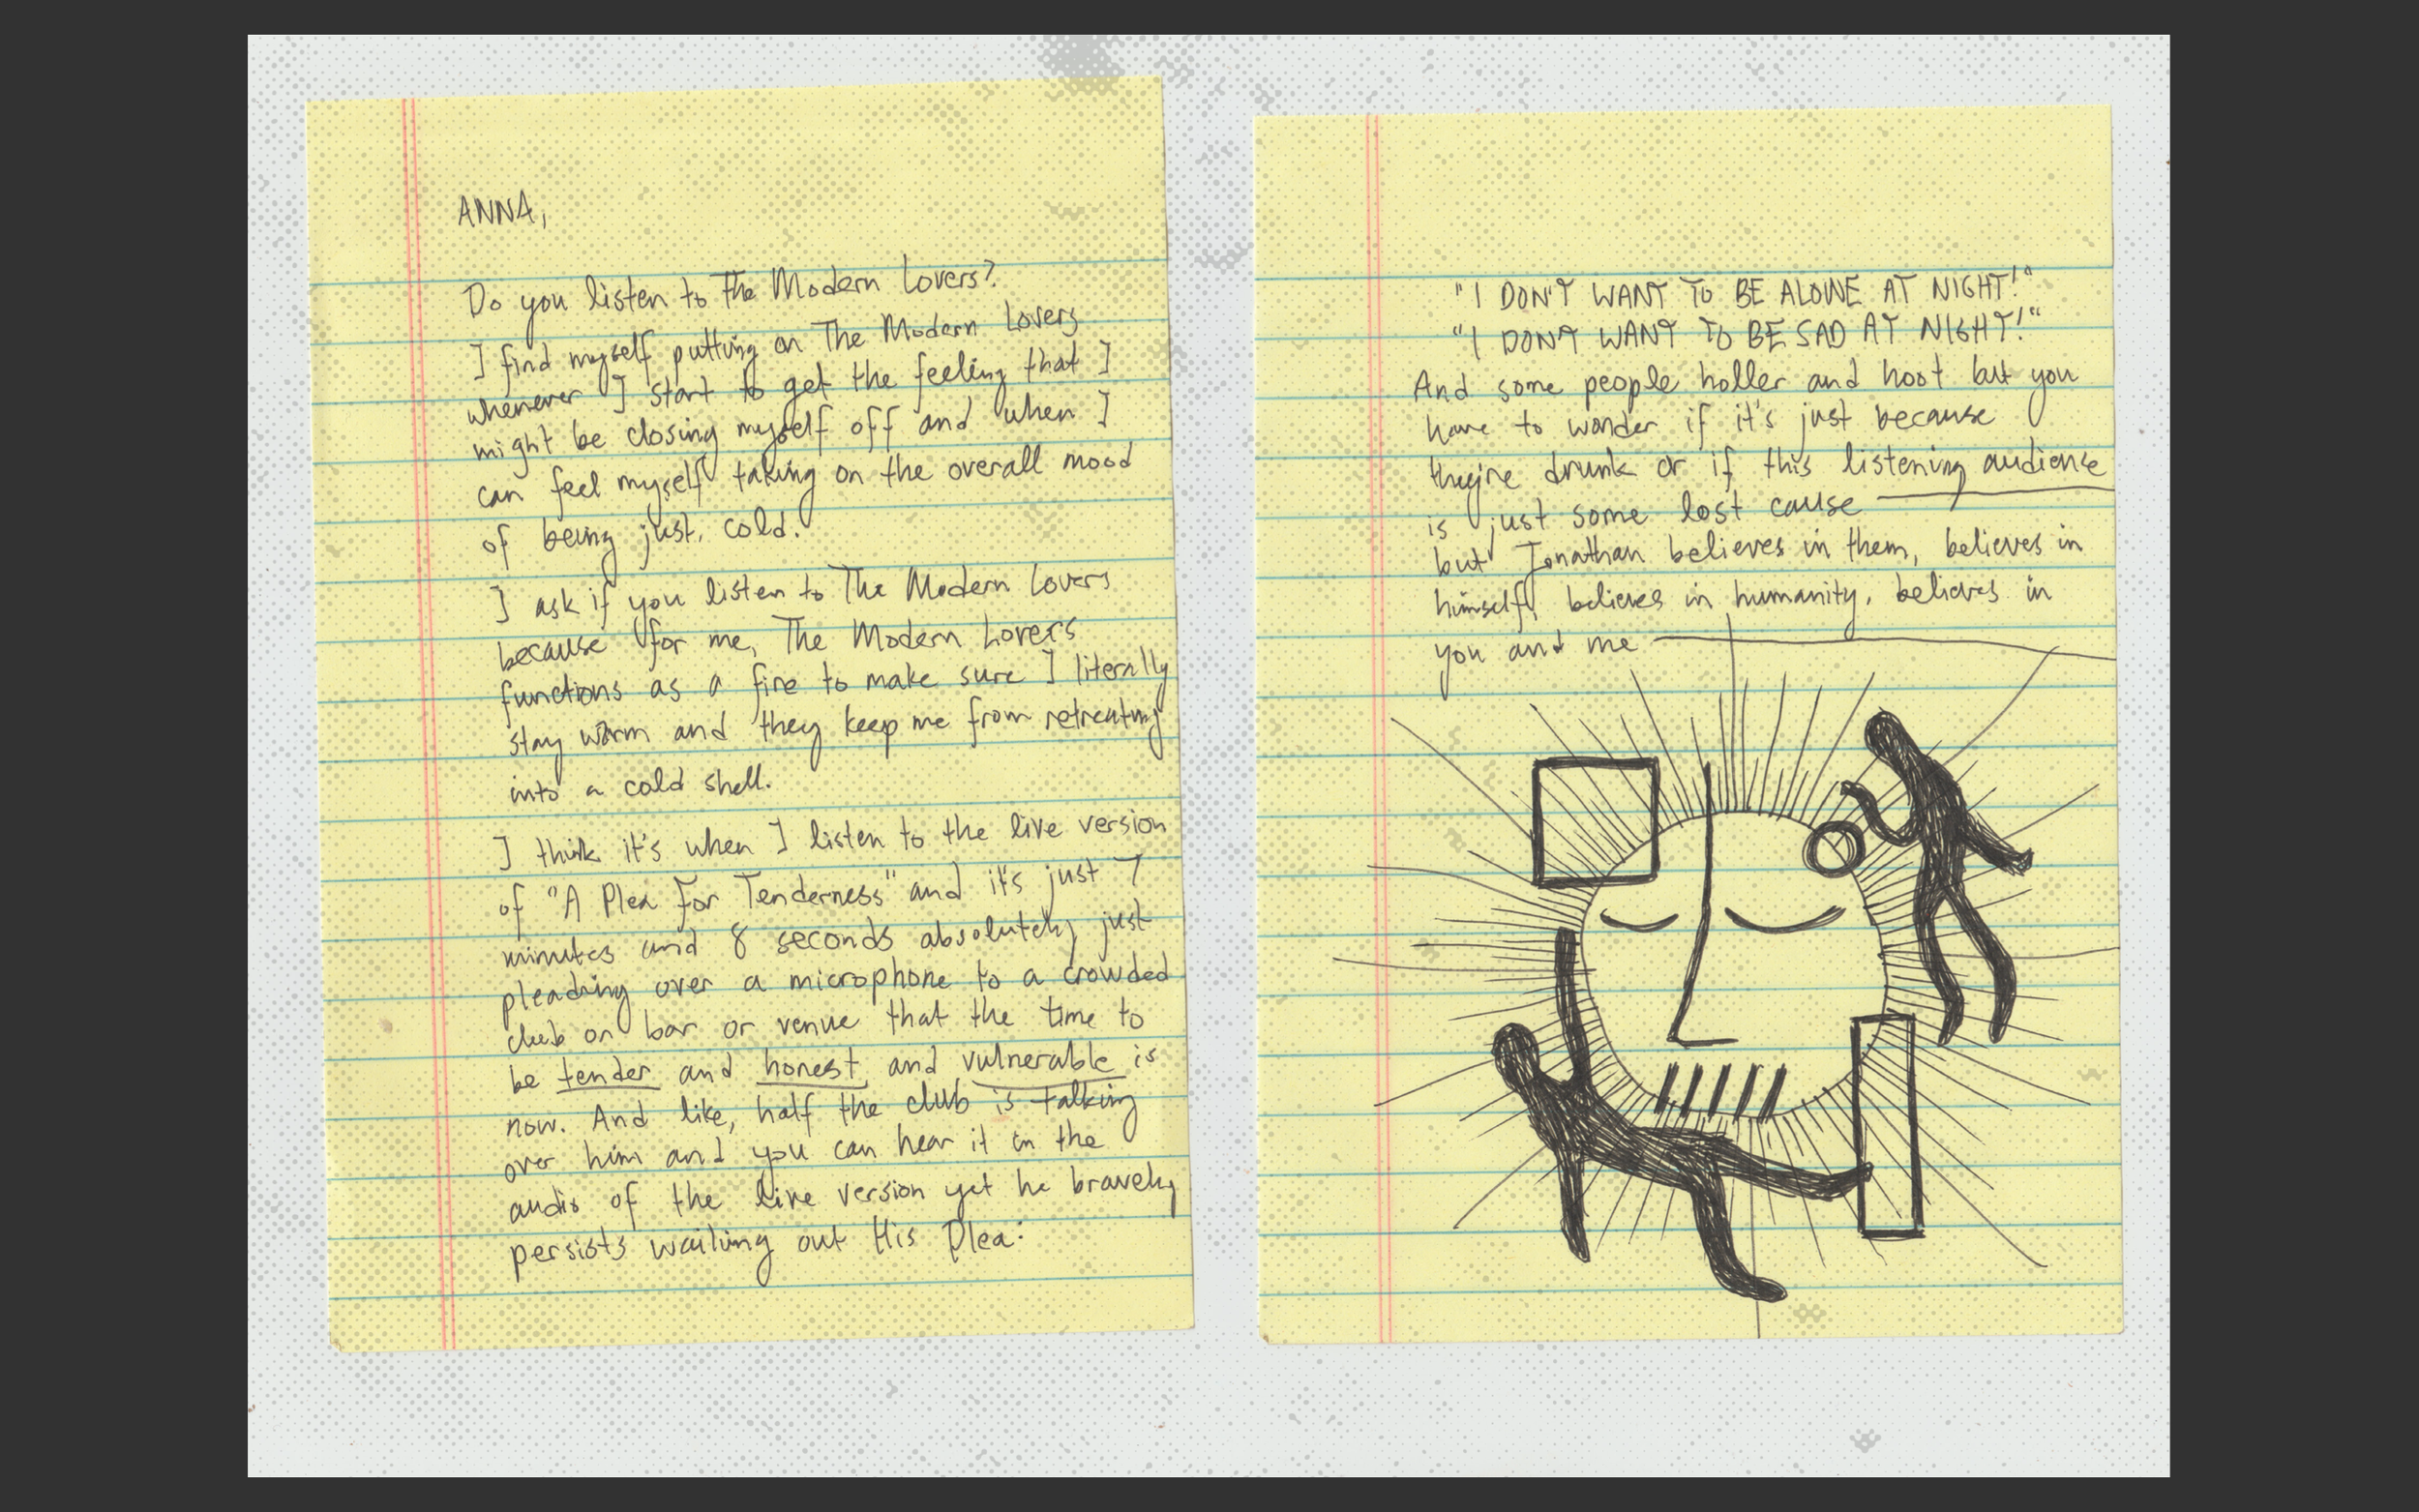 ANNA,
Do you listen to The Modern Lovers?
I find myself putting on The Modern Lovers
whenever I start to get the feeling that I
might be closing myself off and when I
can feel myself taking on the overall mood
of being just. cold.
I ask if you listen to The Modern Lovers
because for me, The Modern Lovers
functions as a fire to make sure I literally
stay warm and they keep me from retreating
into a cold shell.
I think it's when I listen to the live version
of "A Plea For Tenderness" and it's just 7
minutes and 8 seconds absolutely just
pleading over a microphone to a crowded
club or bar or venue that the time to
be tender and honest and vulnerable is
now. And like, half the club is talking
over him and you can hear it in the
audio of the live version yet he bravely
persists wailing out His Plea:
"I DON'T WANT TO BE ALONE AT NIGHT!"
"I DON'T WANT TO BE SAD AT NIGHT!"
And some people holler and hoot but you
have to wonder if it's just because
they're drunk or if this listening audience
is just some lost cause —
but Jonathan believes in them, believes in
himself, believes in humanity, believes in
you and me —